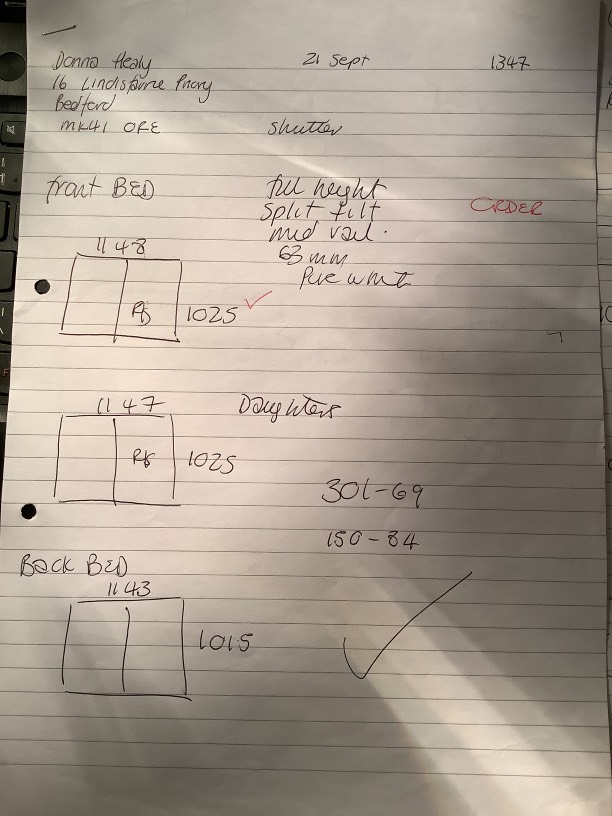 Donna Healy 21 Sept 1347
16 Lindisfarne Priory
Bedford
MK41 0RE shutter
front BED full height
split tilt ORDER
mid rail.
63 mm
Pure white
1148
1025
1147 Daughters
1025
301-69
150-84
Back BED
1143
1015